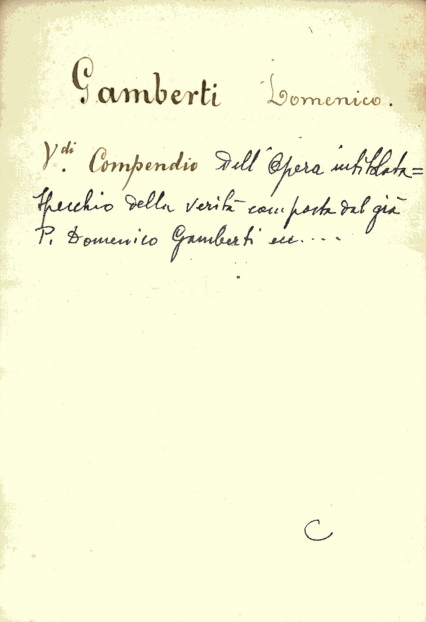 Gamberti Domenico.
V.di Compendio Dell'Opera intitolata=
Specchio della verità composta dal già
P. Domenico Gamberti ecc....
C